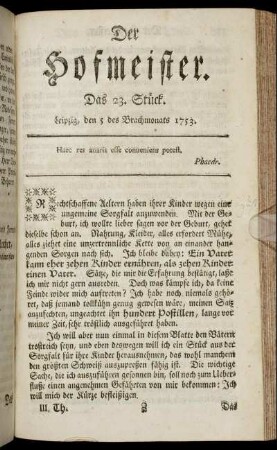 Der
Hofmeister.
Das 23. Stück.
Leipzig, den 5 des Brachmonats 1753.
Haec res amoris esse conueniens potest.
Phaedr.
Rechtschaffene Aeltern haben ihrer Kinder wegen eine
ungemeine Sorgfalt anzuwenden. Mit der Ge-
burt, ich wollte lieber sagen vor der Geburt, gehet
dieselbe schon an. Nahrung, Kleider, alles erfordert Mühe,
alles ziehet eine unzertrennliche Kette von an einander han-
genden Sorgen nach sich. Ich bleibe dabey: Ein Vater
kann eher zehen Kinder ernähren, als zehen Kinder
einen Vater. Sätze, die mir die Erfahrung bestätigt, laße
ich mir nicht gern ausreden. Doch was kämpfe ich, da keine
Feinde wider mich auftreten? Ich habe noch niemals gehö-
ret, daß jemand tollkühn genug gewesen wäre, meinen Satz
anzufechten, ungeachtet ihn hundert Postillen, lange vor
meine Zeit, sehr tröstlich ausgeführet haben.
Ich will aber nun einmal in diesem Blatte den Vätern
trostreich seyn, und eben deswegen will ich ein Stück aus der
Sorgfalt für ihre Kinder herausnehmen, das wohl manchem
den größten Schweiß auszupreßen fähig ist. Die wichtige
Sache, die ich auszuführen gesonnen bin, soll noch zu Ueber-
fluße einen angenehmen Gefährten von mir bekommen: Ich
will mich der Kürze befleißigen.
III. Th.
Z
Das